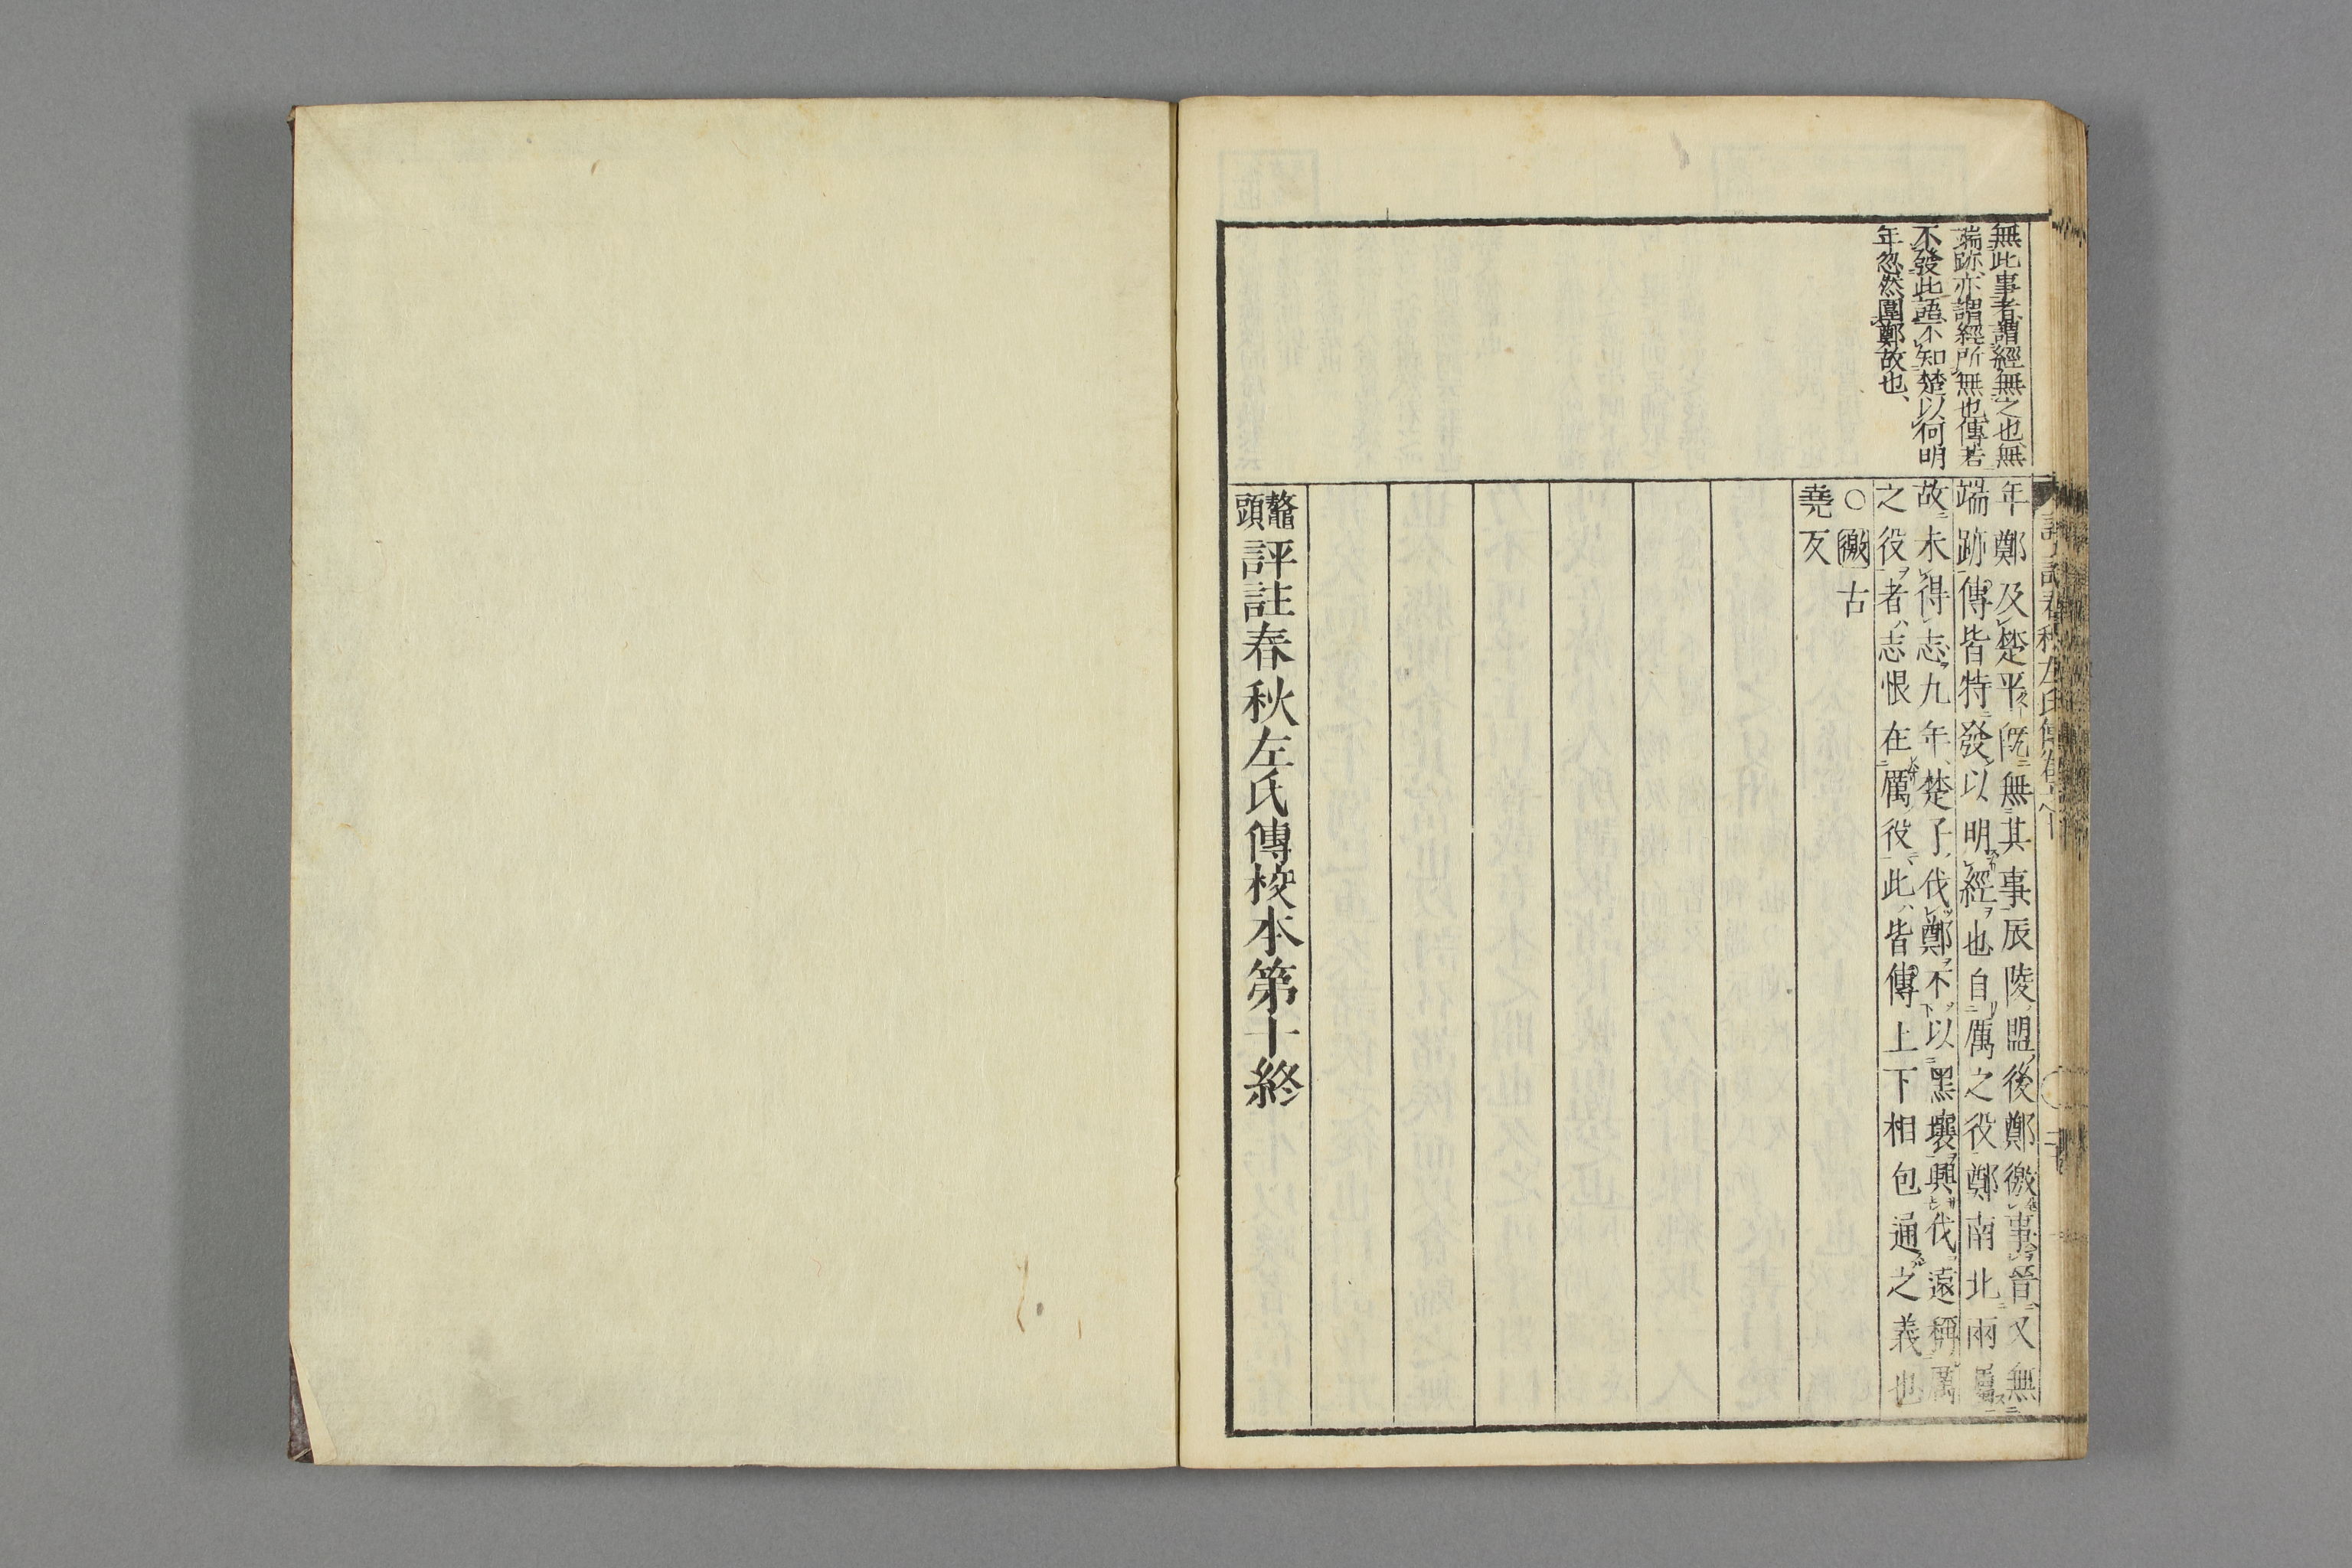 無此事者謂經無之也無
端跡亦謂經所無也傳若
不發此語不知楚以何明
年忽然圍鄭故也、
年鄭及楚平既無其事辰陵盟後鄭徼事晉又無
端跡傳皆特發以明經也自厲之役鄭南北兩屬
故未得志九年楚子伐鄭不以黑壤興伐遠稱厲
之役者志恨在厲役此皆傳上下相包通之義也
○徼古
堯反
鼇頭評註春秋左氏傳校本第十終